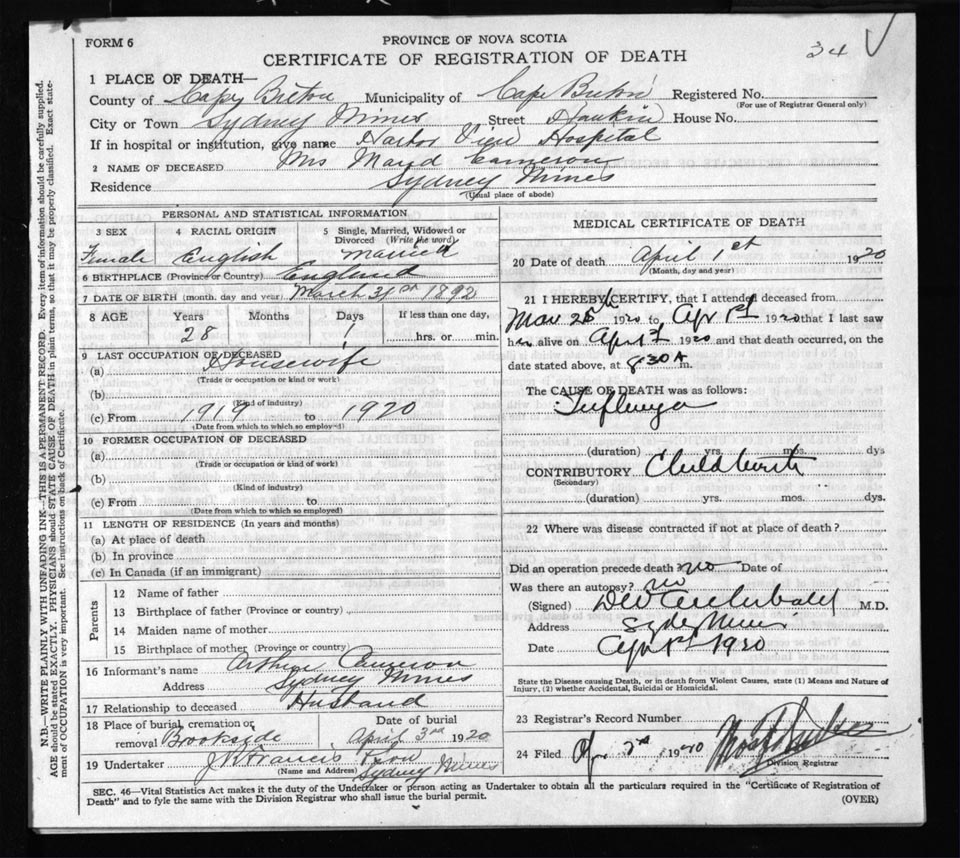 FORM 6
PROVINCE OF NOVA SCOTIA
CERTIFICATE OF REGISTRATION OF DEATH
34
1 PLACE OF DEATH—
County of Cape Breton Municipality of Cape Breton Registered No.
(For use of Registrar General only)
City or Town Sydney Mines Street House No.
If in hospital or institution, give name Harbor View Hospital
2 NAME OF DECEASED Mrs Maud Cameron
Residence Sydney Mines
(Usual place of abode)
PERSONAL AND STATISTICAL INFORMATION
3 SEX 4 RACIAL ORIGIN 5 Single, Married, Widowed or Divorced (Write the word)
Female English Married
6 BIRTHPLACE (Province or Country) England
7 DATE OF BIRTH (month, day and year) March 31st 1892
8 AGE Years Months Days If less than one day,
28 1 hrs. or min.
9 LAST OCCUPATION OF DECEASED
(a) Housewife
(Trade or occupation or kind or work)
(b)
(Kind of industry)
(c) From 1919 to 1920
(Date from which to which so employed)
10 FORMER OCCUPATION OF DECEASED
(a)
(Trade or occupation or kind of work)
(b)
(Kind of industry)
(c) From to
(Date from which to which so employed)
11 LENGTH OF RESIDENCE (In years and months)
(a) At place of death
(b) In province
(c) In Canada (if an immigrant)
Parents
12 Name of father
13 Birthplace of father (Province or country)
14 Maiden name of mother
15 Birthplace of mother (Province or country)
16 Informant's name Arthur Cameron
Address Sydney Mines
17 Relationship to deceased Husband
18 Place of burial, cremation or removal Brookside
Date of burial April 3rd 1920
19 Undertaker J R Francis
(Name and Address) Sydney Mines
MEDICAL CERTIFICATE OF DEATH
20 Date of death April 1st 1920
(Month, day and year)
21 I HEREBY CERTIFY, that I attended deceased from
Mar 1920 to Apr 1st 1920 that I last saw
her alive on April 1st 1920 and that death occurred, on the
date stated above, at 8 30 A m.
The CAUSE OF DEATH was as follows:
Influenza
(duration) yrs. mos. dys
CONTRIBUTORY Childbirth
(Secondary)
(duration) yrs. mos. dys.
22 Where was disease contracted if not at place of death?
Did an operation precede death? no Date of
Was there an autopsy? no
(Signed) DW Archibald M.D.
Address Sydney Mines
Date Apr 1st 1920
State the Disease causing Death, or in death from Violent Causes, state (1) Means and Nature of Injury, (2) whether Accidental, Suicidal or Homicidal.
23 Registrar's Record Number
24 Filed Apr 1920
Division Registrar
SEC. 46—Vital Statistics Act makes it the duty of the Undertaker or person acting as Undertaker to obtain all the particulars required in the "Certificate of Registration of
Death" and to fyle the same with the Division Registrar who shall issue the burial permit.
(OVER)
N.B.—WRITE PLAINLY WITH UNFADING INK—THIS IS A PERMANENT RECORD. Every item of information should be carefully supplied.
AGE should be stated EXACTLY. PHYSICIANS should STATE CAUSE OF DEATH in plain terms, so that it may be properly classified. Exact statement of OCCUPATION is very important. See instructions on back of Certificate.